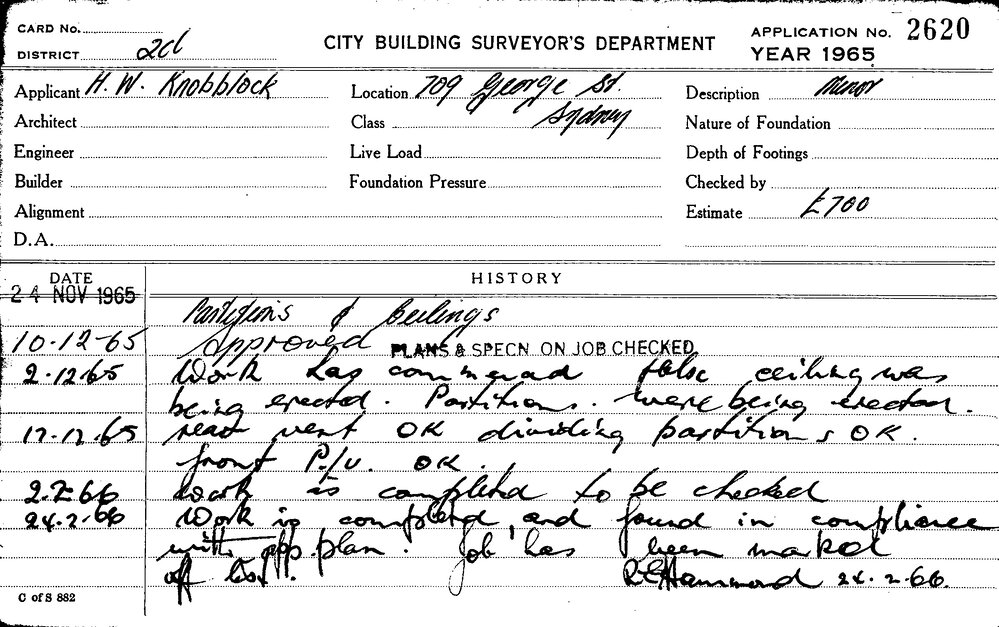 CARD No.
DISTRICT 2d
CITY BUILDING SURVEYOR'S DEPARTMENT
APPLICATION No. 2620
YEAR 1965
Applicant H. W. Knobblock
Location 709 George St.
Sydney
Description Minor
Architect
Class
Nature of Foundation
Engineer
Live Load
Depth of Footings
Builder
Foundation Pressure
Checked by
Alignment
Estimate £700
D.A.
DATE
HISTORY
24 NOV 1965
Partitions & Ceilings
10-12-65 Approved PLANS & SPECN ON JOB CHECKED
2.12.65 Work has commenced false ceiling was
being erected. Partitions. were being erected.
17.12.65 rear vent OK dividing partitions OK.
front P./v. OK.
2.2.66 Work is completed to be checked
24.2.66 Work is completed, and found in compliance
with app plan. Job has been marked
off
R E Hammond 24.2.66
C of S 882